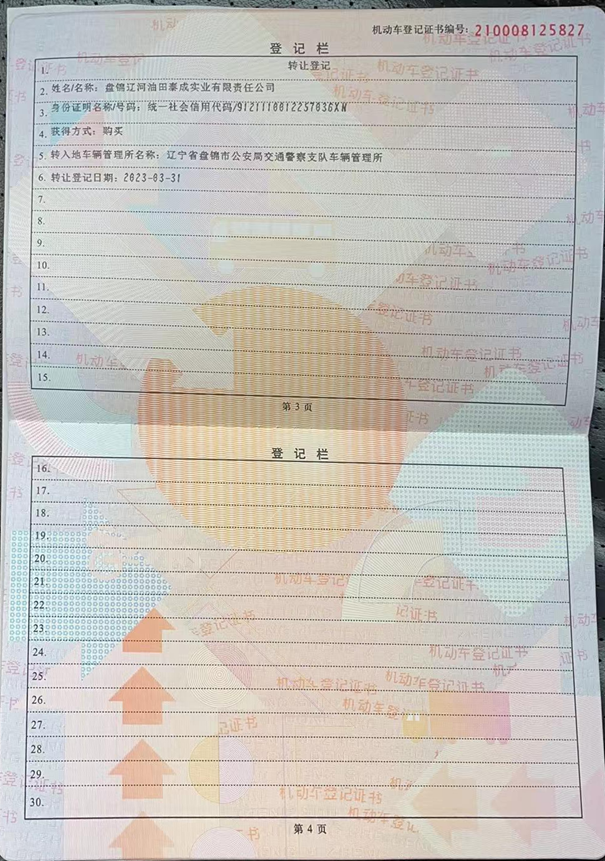 机动车登记证书编号: 210008125827
登 记 栏
1. 转让登记
2. 姓名/名称: 盘锦辽河油田泰成实业有限责任公司
3. 身份证明名称/号码: 统一社会信用代码/9121110012257036XW
4. 获得方式: 购买
5. 转入地车辆管理所名称: 辽宁省盘锦市公安局交通警察支队车辆管理所
6. 转让登记日期: 2023-03-31
7.
8.
9.
10.
11.
12.
13.
14.
15.
第 3 页
登 记 栏
16.
17.
18.
19.
20.
21.
22
23
24.
25.
26.
27.
28.
29.
30.
第 4 页